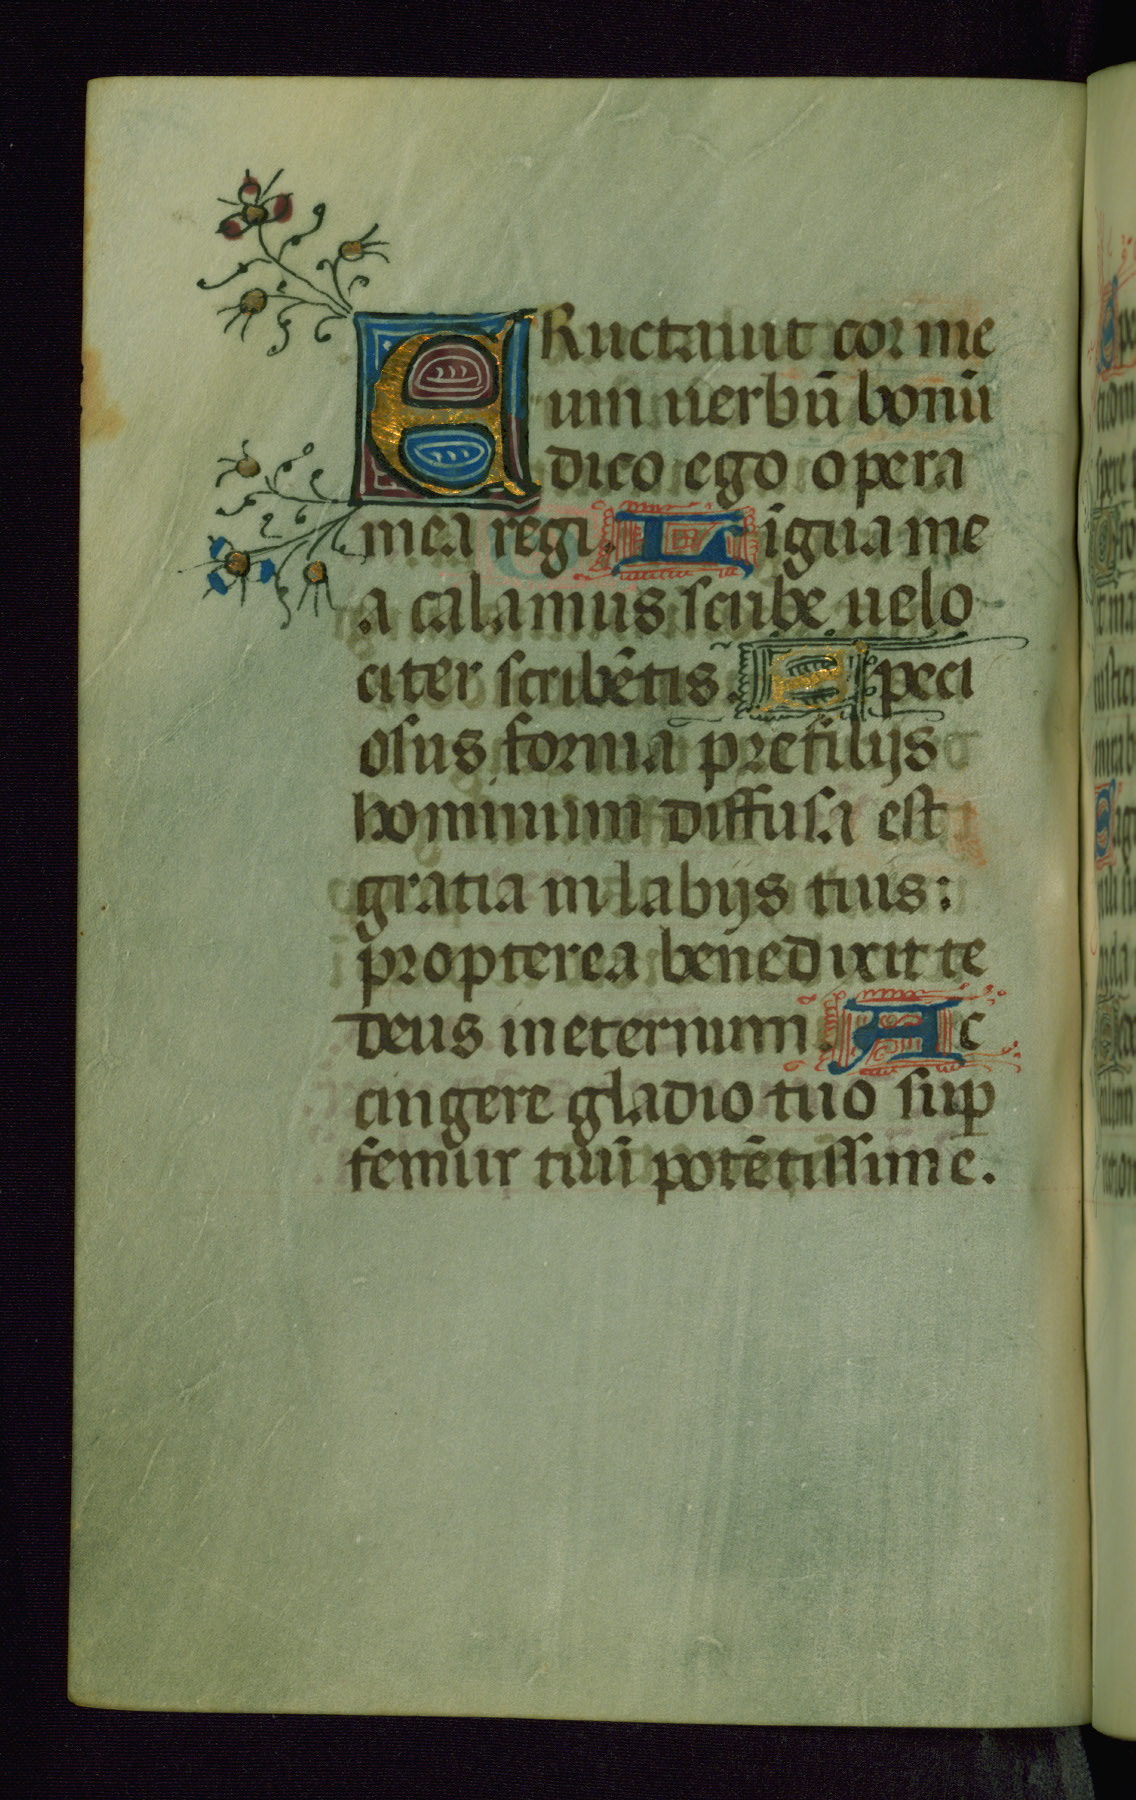 ERuctauit cor me
um uerbū bonū
dico ego opera
mea regi. Līgua me
a calamus scribe uelo
citer scribētis. Speci
osus forma prefilijs
hominum diffusa est
gratia in labijs tuis:
propterea benedixit te
deus in eternum. Ac
cingere gladio tuo sup
femur tuū potētissime.